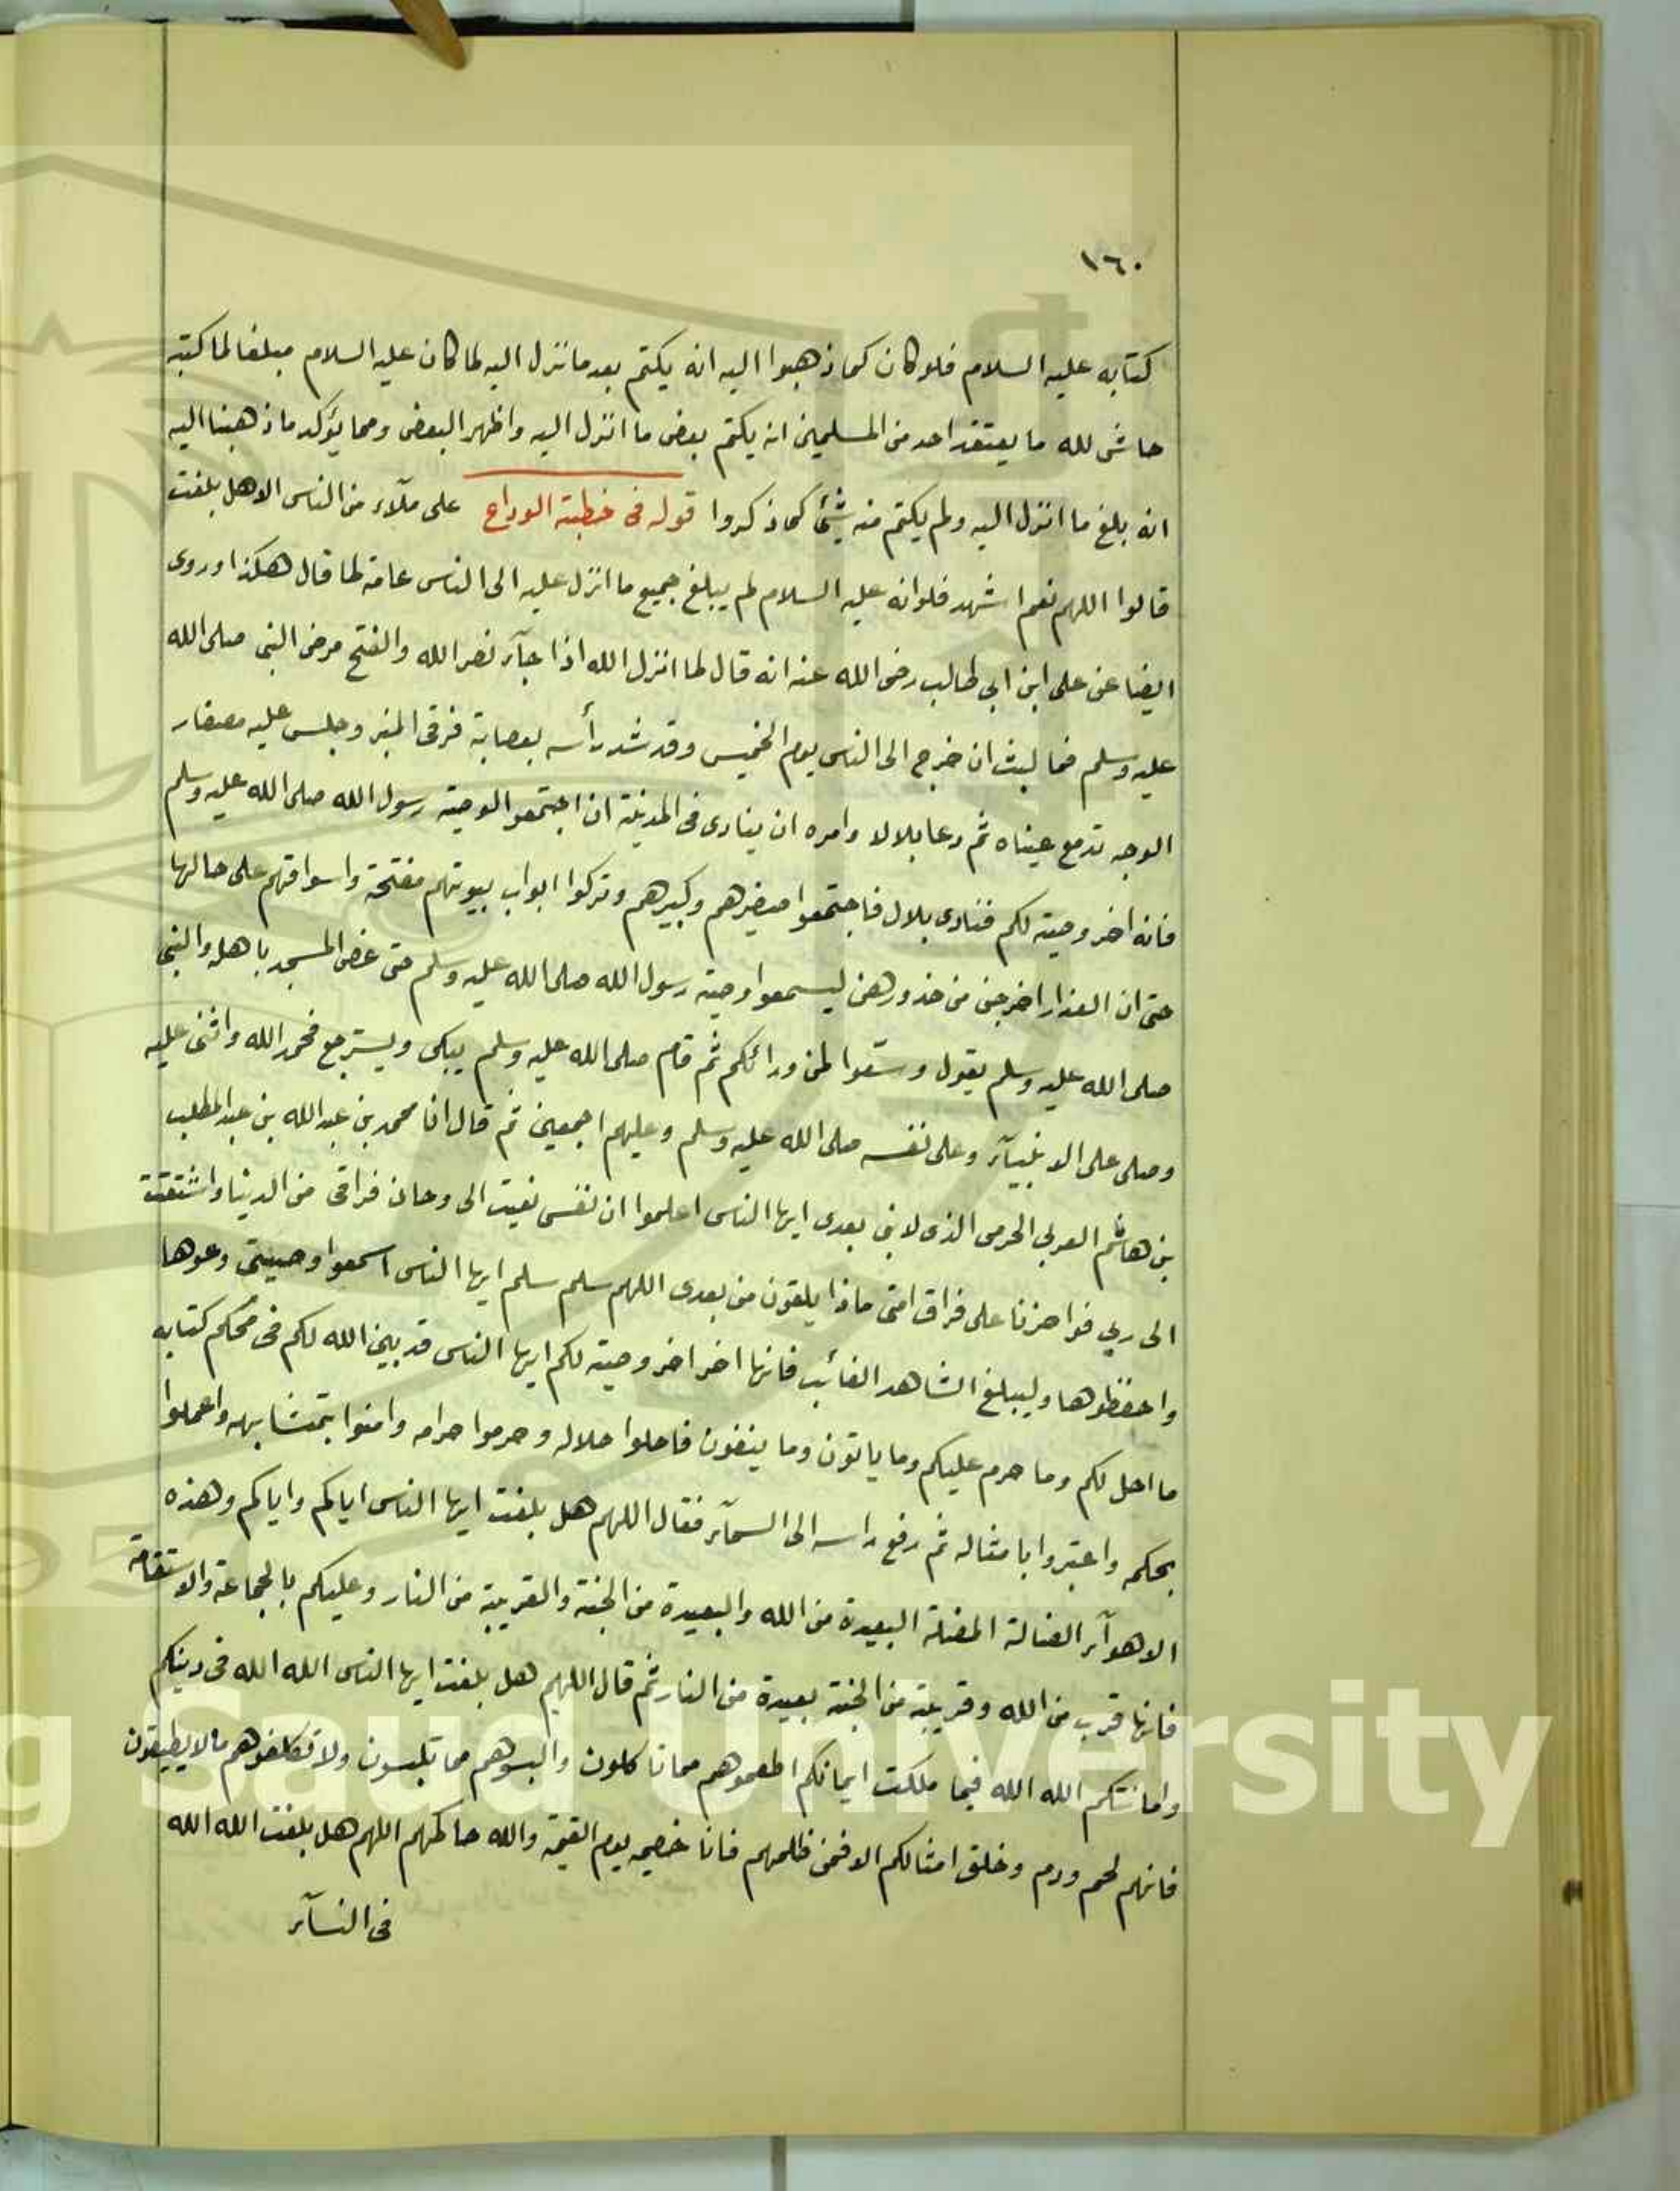 ١٦٠
كتابه عليه السلام فلو كان كما ذهبوا اليه انه يكتم بعد ما نزل اليه لما كان عليه السلام مبلغا لما كتبه
حاشى لله ما يعتقد احد من المسلمين انه يكتم بعض ما انزل اليه واظهر البعض ومما يؤكد ما ذهبنا اليه
انه بلغ ما انزل اليه ولم يكتم منه شيئ كما ذكروا قوله فى خطبة الوداع على ملآء من الناس الا هل بلغت
قالوا اللهم نعم اشهد فلو انه عليه السلام لم يبلغ جميع ما انزل عليه الى الناس عامة لما قال هكذا وروى
ايضا عن على ابن ابي طالب رضى الله عنه انه قال لما انزل الله اذا جآء نصر الله والفتح مرض النبى صلى الله
عليه وسلم فما لبث ان خرج الى الناس يوم الخميس وقد شد رأسه بعصابة فرقى المنبر وجلس عليه مصفار
الوجه تدمع عيناه ثم دعا بلالا وامره ان ينادى فى المدينة ان اجتمعوا لوصية رسول الله صلى الله عليه وسلم
فانه اخر وصية لكم فنادى بلال فاجتمعوا صغيرهم وكبيرهم وتركوا ابواب بيوتهم مفتحة واسواقهم على حالها
حتى ان العذارا خرجن من خدورهن ليسمعوا وصية رسول الله صلى الله عليه وسلم حتى غص المسجد باهله والنبى
صلى الله عليه وسلم يقول وسّعوا لمن ورائكم ثم قام صلى الله عليه وسلم يبكى ويسترجع فحمد الله واثنى عليه
وصلى على الانبيآء وعلى نفسه صلى الله عليه وسلم وعليهم اجمعين ثم قال انا محمد بن عبد الله بن عبد المطلب
بن هاشم العربي الحرمى الذى لا نبى بعدى ايها الناس اعلموا ان نفسى نعيت الى وحان فراقى من الدنيا واشتقت
الى ربي فواحزنا على فراق امتى ماذا يلقون من بعدى اللهم سلم سلم ايها الناس اسمعوا وصيتى وعوها
واحفظوها وليبلغ الشاهد الغائب فانها اخر اخر وصية لكم ايها الناس قد بين الله لكم فى محكم كتابه
ما احل لكم وما حرم عليكم وما ياتون وما ينفون فاحلوا حلاله وحرموا حرامه وامنوا بمتشابهه واعملوا
بحكمه واعتبروا بامثاله ثم رفع راسه الى السمآء فقال اللهم هل بلغت ايها الناس اياكم واياكم وهذه
الاهوآء الضالة المضلة البعيدة من الله والبعيدة من الجنة والقريبة من النار وعليكم بالجماعة والاستقامة
فانها قرب من الله وقريبة من الجنة بعيدة من النار ثم قال اللهم هل بلغت ايها الناس الله الله فى دينكم
وامانتكم الله الله فيما ملكت ايمانكم اطعموهم مما تاكلون والبسوهم مما تلبسون ولا تكلفوهم ما لا يطيقون
فانهم لحم ودم وخلق امثالكم الا فمن ظلمهم فانا خصيمه يوم القيمة والله حاكمهم اللهم هل بلغت الله الله
فى النسآء
g Saud University